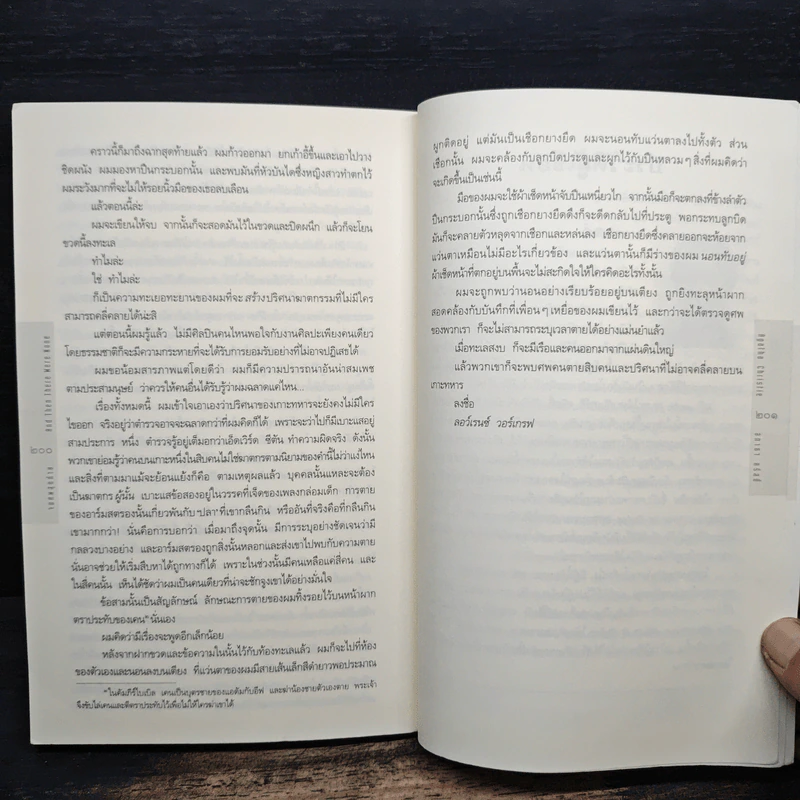 คราวนี้ก็มาถึงฉากสุดท้ายแล้ว ผมก้าวออกมา ยกเก้าอี้ขึ้นและเอาไปวาง
ชิดผนัง ผมมองหาปืนกระบอกนั้น และพบมันที่หัวบันไดซึ่งหญิงสาวทำตกไว้
ผมระวังมากที่จะไม่ให้รอยนิ้วมือของเธอลบเลือน
แล้วตอนนี้ล่ะ
ผมจะเขียนให้จบ จากนั้นก็จะสอดมันไว้ในขวดและปิดผนึก แล้วก็จะโยน
ขวดนี้ลงทะเล
ทำไมล่ะ
ใช่ ทำไมล่ะ
ก็เป็นความทะเยอทะยานของผมที่จะ สร้าง ปริศนาฆาตกรรมที่ไม่มีใคร
สามารถคลี่คลายได้น่ะสิ
แต่ตอนนี้ผมรู้แล้ว ไม่มีศิลปินคนไหนพอใจกับงานศิลปะเพียงคนเดียว
โดยธรรมชาติก็จะมีความกระหายที่จะได้รับการยอมรับอย่างที่ไม่อาจปฏิเสธได้
ผมขอน้อมสารภาพแต่โดยดีว่า ผมก็มีความปรารถนาอันน่าสมเพช
ตามประสามนุษย์ ว่าควรให้คนอื่นได้รับรู้ว่าผมฉลาดแค่ไหน...
เรื่องทั้งหมดนี้ ผมเข้าใจเอาเองว่าปริศนาของเกาะทหารจะยังคงไม่มีใคร
ไขออก จริงอยู่ว่าตำรวจอาจจะฉลาดกว่าที่ผมคิดก็ได้ เพราะจะว่าไปก็มีเบาะแสอยู่
สามประการ หนึ่ง ตำรวจรู้อยู่เต็มอกว่าเอ็ดเวิร์ด ซีตัน ทำความผิดจริง ดังนั้น
พวกเขาย่อมรู้ว่าคนบนเกาะหนึ่งในสิบคนไม่ใช่ฆาตกรตามนิยามของคำนี้ไม่ว่าแง่ไหน
และสิ่งที่ตามมาแม้จะย้อนแย้งก็คือ ตามเหตุผลแล้ว บุคคลนั้นแหละจะต้อง
เป็นฆาตกร ผู้นั้น เบาะแสข้อสองอยู่ในวรรคที่เจ็ดของเพลงกล่อมเด็ก การตาย
ของอาร์มสตรองนั้นเกี่ยวพันกับ "ปลา" ที่เขากลืนกิน หรืออันที่จริงคือที่กลืนกิน
เขามากกว่า! นั่นคือการบอกว่า เมื่อมาถึงจุดนั้น มีการระบุอย่างชัดเจนว่ามี
กลลวงบางอย่าง และอาร์มสตรองถูกสิ่งนั้นหลอกและส่งเขาไปพบกับความตาย
นั่นอาจช่วยให้เริ่มสืบหาได้ถูกทางก็ได้ เพราะในช่วงนั้นมีคนเหลือแค่สี่คน และ
ในสี่คนนั้น เห็นได้ชัดว่าผมเป็นคนเดียวที่น่าจะชักจูงเขาได้อย่างมั่นใจ
ข้อสามนั้นเป็นสัญลักษณ์ ลักษณะการตายของผมทิ้งรอยไว้บนหน้าผาก
ตราประทับของเคน* นั่นเอง
ผมคิดว่ามีเรื่องจะพูดอีกเล็กน้อย
หลังจากฝากขวดและข้อความในนั้นไว้กับท้องทะเลแล้ว ผมก็จะไปที่ห้อง
ของตัวเองและนอนลงบนเตียง ที่แว่นตาของผมมีสายเส้นเล็กสีดำยาวพอประมาณ
*ในคัมภีร์ไบเบิล เคนเป็นบุตรชายของแอดัมกับอีฟ และฆ่าน้องชายตัวเองตาย พระเจ้า
จึงขับไล่เคนและตีตราประทับไว้เพื่อไม่ให้ใครฆ่าเขาได้
And Then There Were None
๒๐๐
ผูกติดอยู่ แต่มันเป็นเชือกยางยืด ผมจะนอนทับแว่นตาลงไปทั้งตัว ส่วน
เชือกนั้น ผมจะคล้องกับลูกบิดประตูและผูกไว้กับปืนหลวมๆ สิ่งที่ผมคิดว่า
จะเกิดขึ้นเป็นเช่นนี้
มือของผมจะใช้ผ้าเช็ดหน้าจับปืนเหนี่ยวไก จากนั้นมือก็จะตกลงที่ข้างลำตัว
ปืนกระบอกนั้นซึ่งถูกเชือกยางยืดดึงก็จะดีดกลับไปที่ประตู พอกระทบลูกบิด
มันก็จะคลายตัวหลุดจากเชือกและหล่นลง เชือกยางยืดซึ่งคลายออกจะห้อยจาก
แว่นตาเหมือนไม่มีอะไรเกี่ยวข้อง และแว่นตานั้นก็มีร่างของผม นอนทับอยู่
ผ้าเช็ดหน้าที่ตกอยู่บนพื้นจะไม่สะกิดใจให้ใครคิดอะไรทั้งนั้น
ผมจะถูกพบว่านอนอย่างเรียบร้อยอยู่บนเตียง ถูกยิงทะลุหน้าผาก
สอดคล้องกับบันทึกที่เพื่อนๆ เหยื่อของผมเขียนไว้ และกว่าจะได้ตรวจดูศพ
ของพวกเรา ก็จะไม่สามารถระบุเวลาตายได้อย่างแม่นยำแล้ว
เมื่อทะเลสงบ ก็จะมีเรือและคนออกมาจากแผ่นดินใหญ่
แล้วพวกเขาก็จะพบศพคนตายสิบคนและปริศนาที่ไม่อาจคลี่คลายบน
เกาะทหาร
ลงชื่อ
ลอว์เรนซ์ วอร์เกรฟ
Agatha Christie
๒๐๑
อกาทา คริสตี